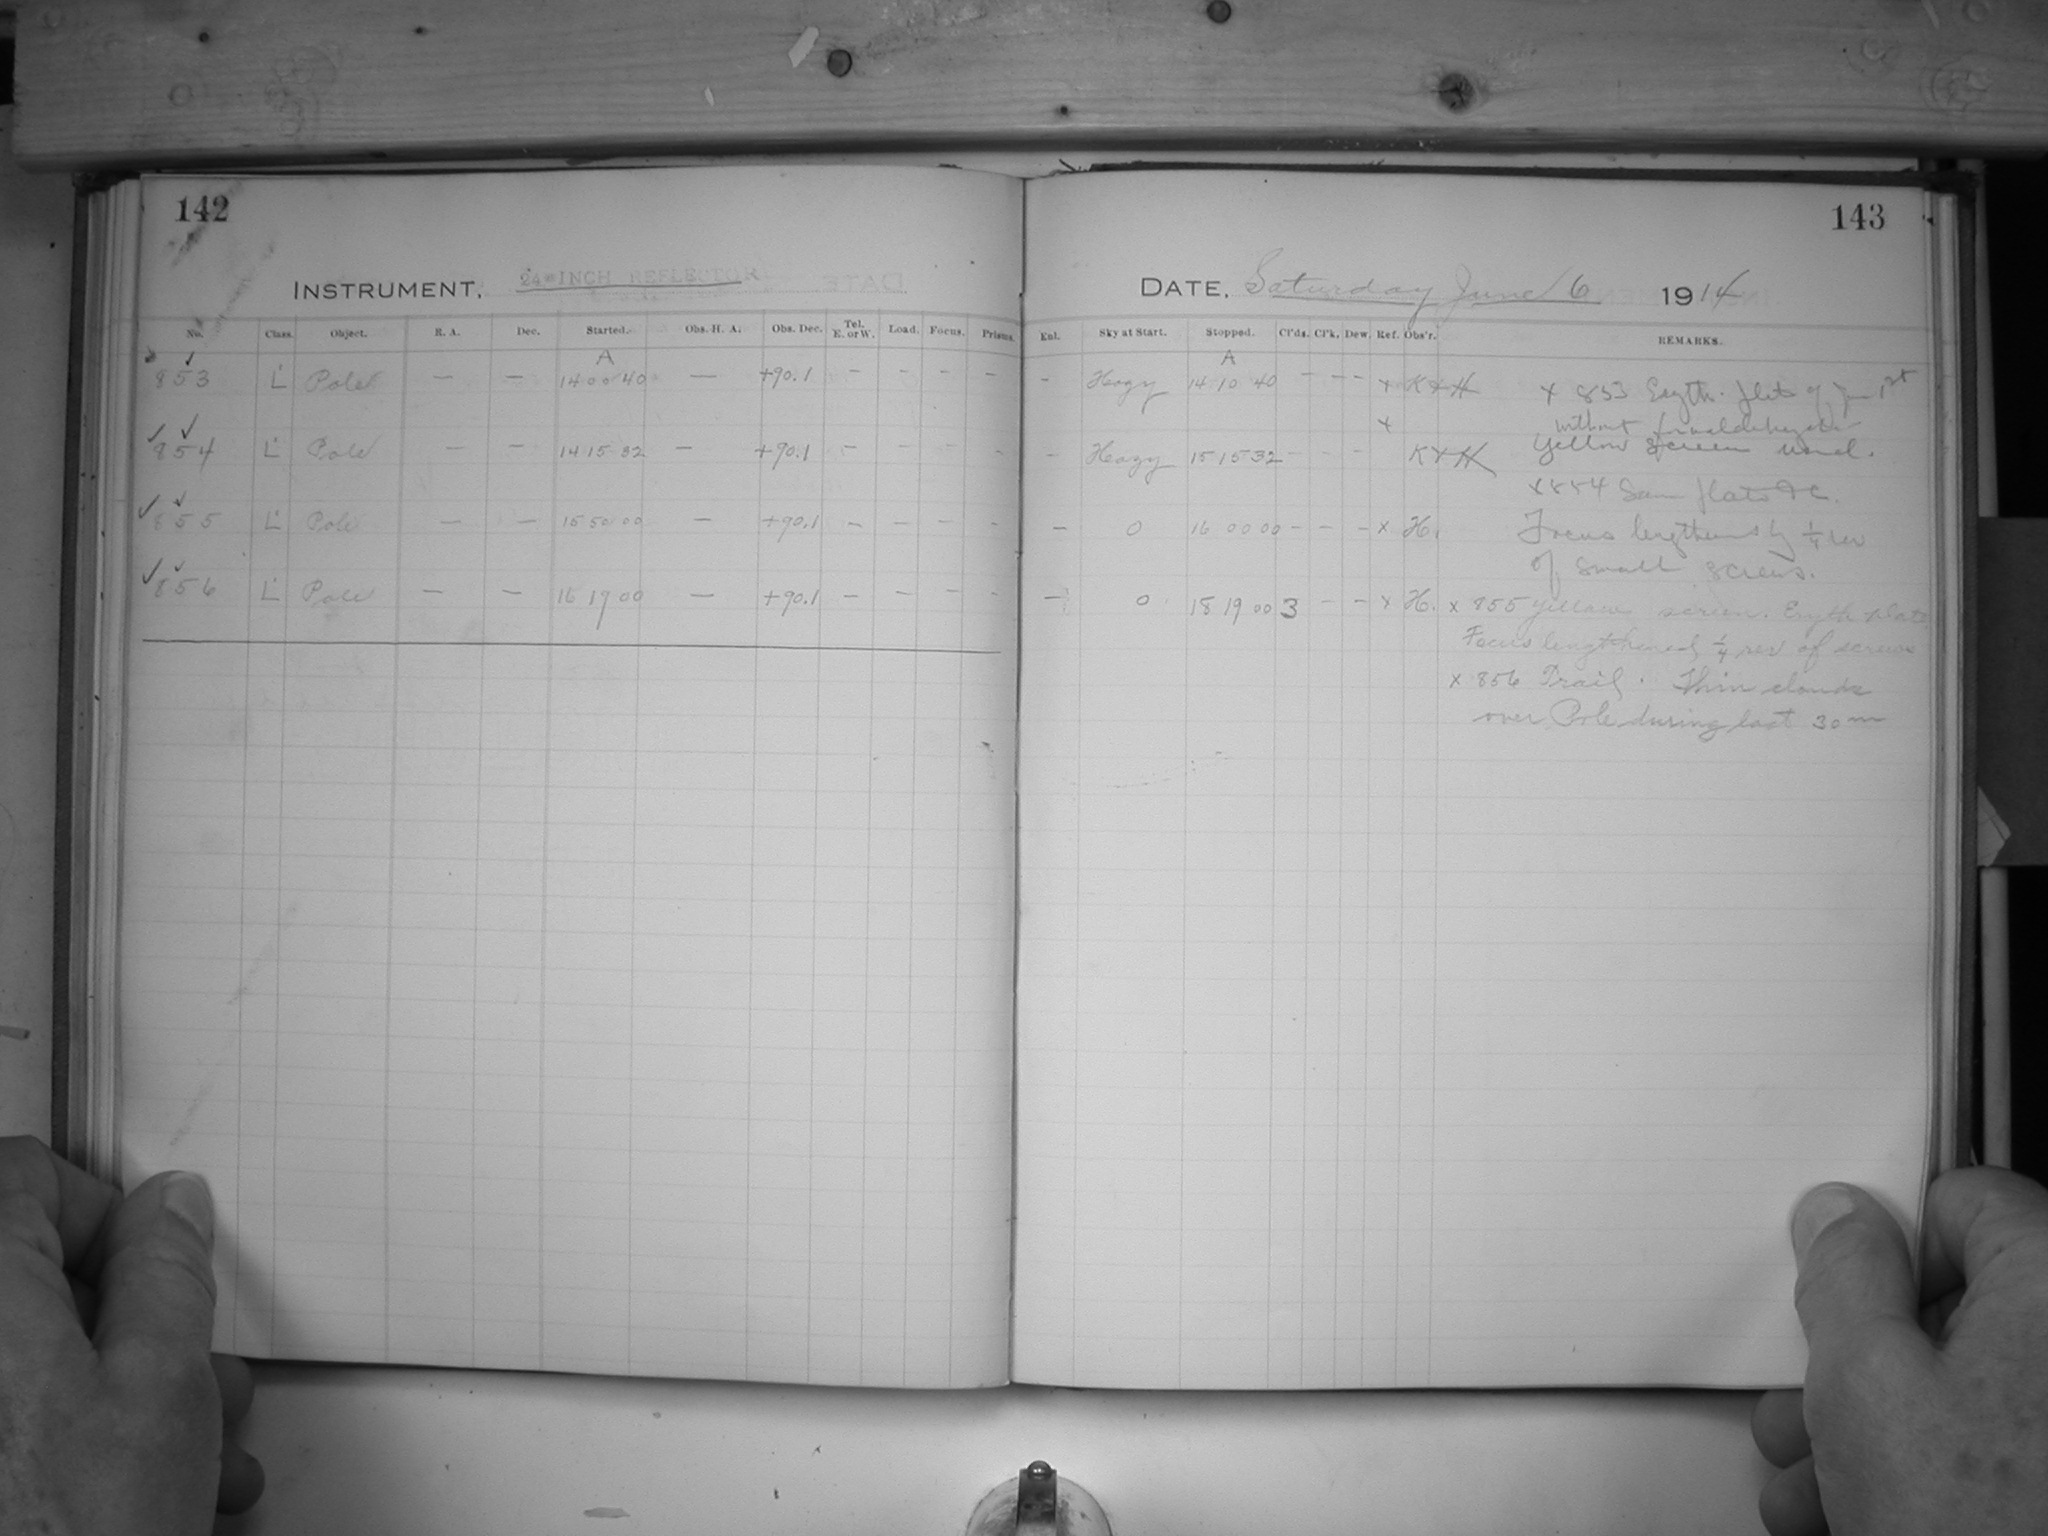 142
INSTRUMENT, 24-INCH REFLECTOR
No. Class. Object. R. A. Dec. Started. Obs. H. A. Obs. Dec. Tel. E. or W. Load. Focus. Prisms.
A
853 L Pole — — 14 00 40 — +90.1 – – – –
854 L Pole — — 14 15 32 — +90.1 – –
855 L Pole — — 15 50 00 — +90.1 – – – –
856 L Pole — — 16 19 00 — +90.1 – – – –
143
DATE, Saturday June 6 1914
Enl. Sky at Start. Stopped. Cl'ds. Cl'k. Dew. Ref. Obs'r. REMARKS.
A
– Hazy 14 10 40 – – – x K & H
x
– Hazy 15 15 32 – – – K & H
– 0 16 00 00 – – – x H.
– 0 18 19 00 3 – – x H.
x 853 Eryth. plate of 1st
without
Yellow screen used.
x 854 Same plate &c.
Focus lengthened by 1/4 rev
of small screws.
x 855 Yellow screen. Eryth plate
Focus lengthened 1/4 rev of screws
x 856 Trail. Thin clouds
over Pole during last 30m